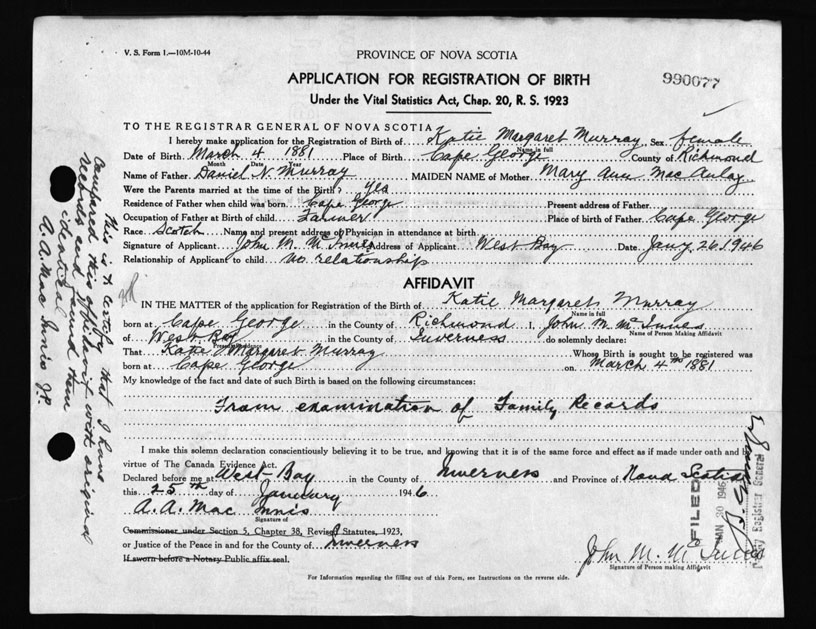 V. S. Form 1.—10M-10-44
PROVINCE OF NOVA SCOTIA
APPLICATION FOR REGISTRATION OF BIRTH
990077
Under the Vital Statistics Act, Chap. 20, R. S. 1923
TO THE REGISTRAR GENERAL OF NOVA SCOTIA
I hereby make application for the Registration of Birth of Katie Margaret Murray Sex female
Name in full
Date of Birth March 4 1881 Place of Birth Cape George County of Richmond
Month Date Year
Name of Father Daniel N. Murray MAIDEN NAME of Mother Mary Ann MacAulay
Were the Parents married at the time of the Birth? yes
Residence of Father when child was born Cape George Present address of Father
Occupation of Father at Birth of child Farmer Place of birth of Father Cape George
Race Scotch Name and present address of Physician in attendance at birth
Signature of Applicant John M. McInnes Address of Applicant West Bay Date Jany 26 1946
Relationship of Applicant to child no relationship
AFFIDAVIT
IN THE MATTER of the application for Registration of the Birth of Katie Margaret Murray
Name in full
born at Cape George in the County of Richmond I, John M. McInnes
Name of Person Making Affidavit
of West Bay in the County of Inverness do solemnly declare:
Present Residence
That Katie Margaret Murray Whose Birth is sought to be registered was
born at Cape George on March 4th 1881
My knowledge of the fact and date of such Birth is based on the following circumstances:
From examination of Family Records
I make this solemn declaration conscientiously believing it to be true, and knowing that it is of the same force and effect as if made under oath and by
virtue of The Canada Evidence Act.
Declared before me at West Bay in the County of Inverness and Province of Nova Scotia
this 25th day of January 1946
A. A. MacInnis
Signature of
Commissioner under Section 5, Chapter 38, Revised Statutes, 1923,
or Justice of the Peace in and for the County of Inverness
If sworn before a Notary Public affix seal.
John M. McInnes
Signature of Person making Affidavit
For Information regarding the filling out of this Form, see Instructions on the reverse side.
This is to certify that I have
compared this affidavit with original
records and found them
identical
A.A. MacInnis J.P.
FILED
JAN 30 1946
Deputy Registrar General